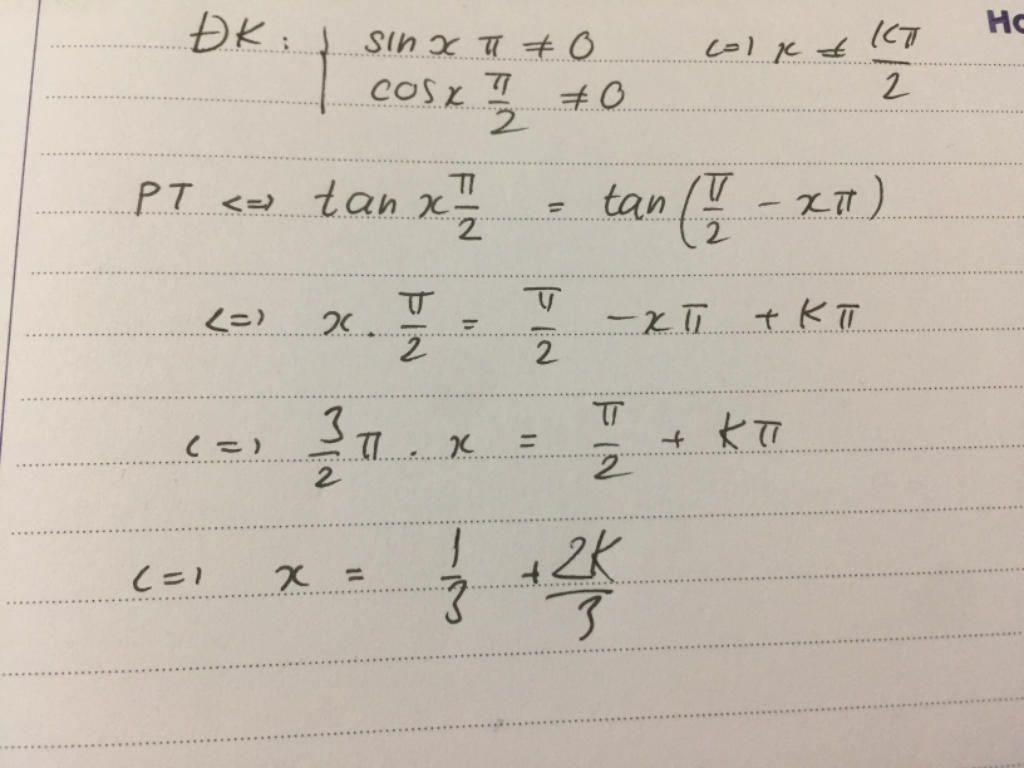 ĐK: sin x π ≠ 0 <=> x ≠ kπ/2
cos x π/2 ≠ 0
PT <=> tan x π/2 = tan (π/2 - xπ)
<=> x . π/2 = π/2 - xπ + kπ
<=> 3/2 π . x = π/2 + kπ
<=> x = 1/3 + 2k/3